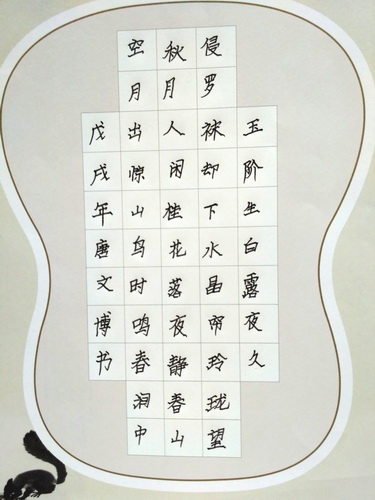 玉阶生白露夜久
侵罗袜却下水晶帘玲珑望
秋月人闲桂花落夜静春山
空月出惊山鸟时鸣春涧中
戊戌年唐文博书